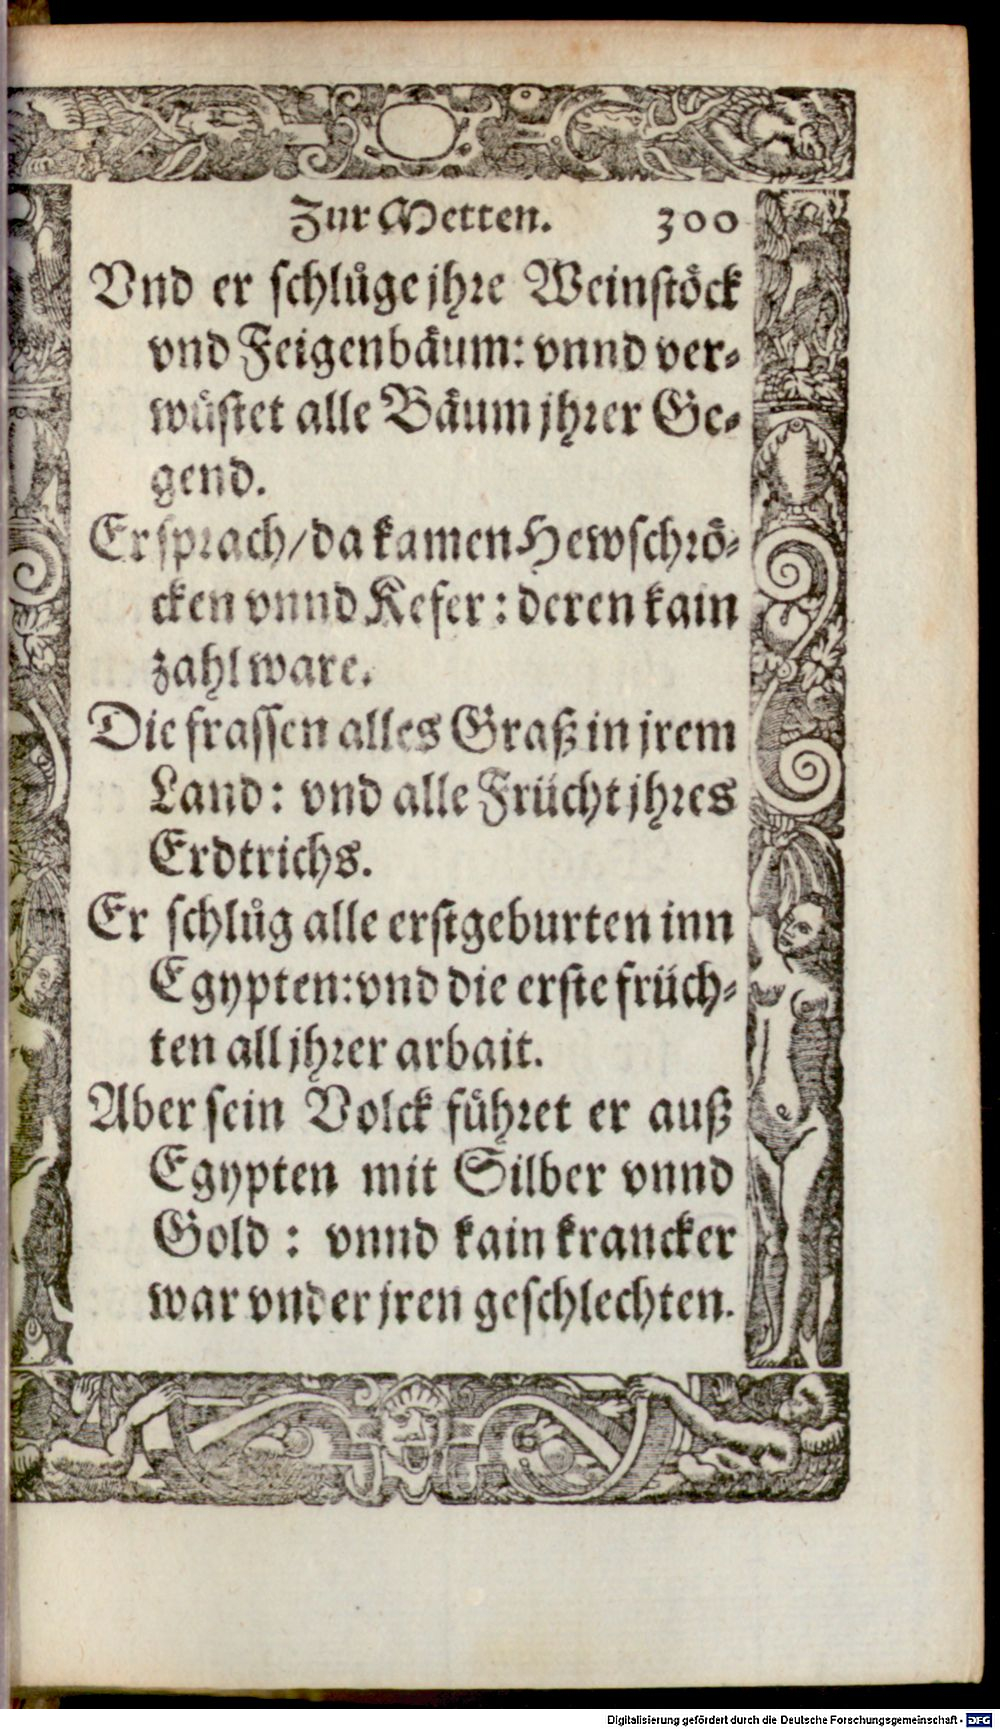 Zur Metten. 300
Vnd er schlůge jhre Weinstöck
vnd Feigenbäum: vnnd ver-
wüstet alle Bäum jhrer Ge-
gend.
Er sprach/da kamen Hewschrö-
cken vnnd Kefer: deren kain
zahl ware.
Die frassen alles Graß in jrem
Land: vnd alle Frücht jhres
Erdtrichs.
Er schlůg alle erstgeburten inn
Egypten: vnd die erste früch-
ten all jhrer arbait.
Aber sein Volck führet er auß
Egypten mit Silber vnnd
Gold: vnnd kain krancker
war vnder jren geschlechten.
Digitalisierung gefördert durch die Deutsche Forschungsgemeinschaft - DFG